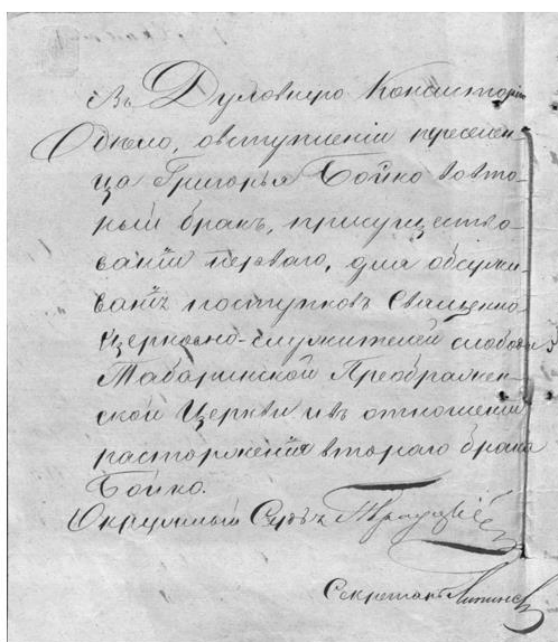 Въ Духовную Консисторію
Дѣло, овступленіи преселен-
ца Григорья Бойко вовто-
рый бракъ, присущество-
ваніи перваго, для обсужи-
ванія поступковъ Священно
церковно-служителей слободы
Табаринской Преображен-
ской Церкви ивъ отношеніи
расторженія втораго брака
Бойко.
Окружный Судъ
Секретарь